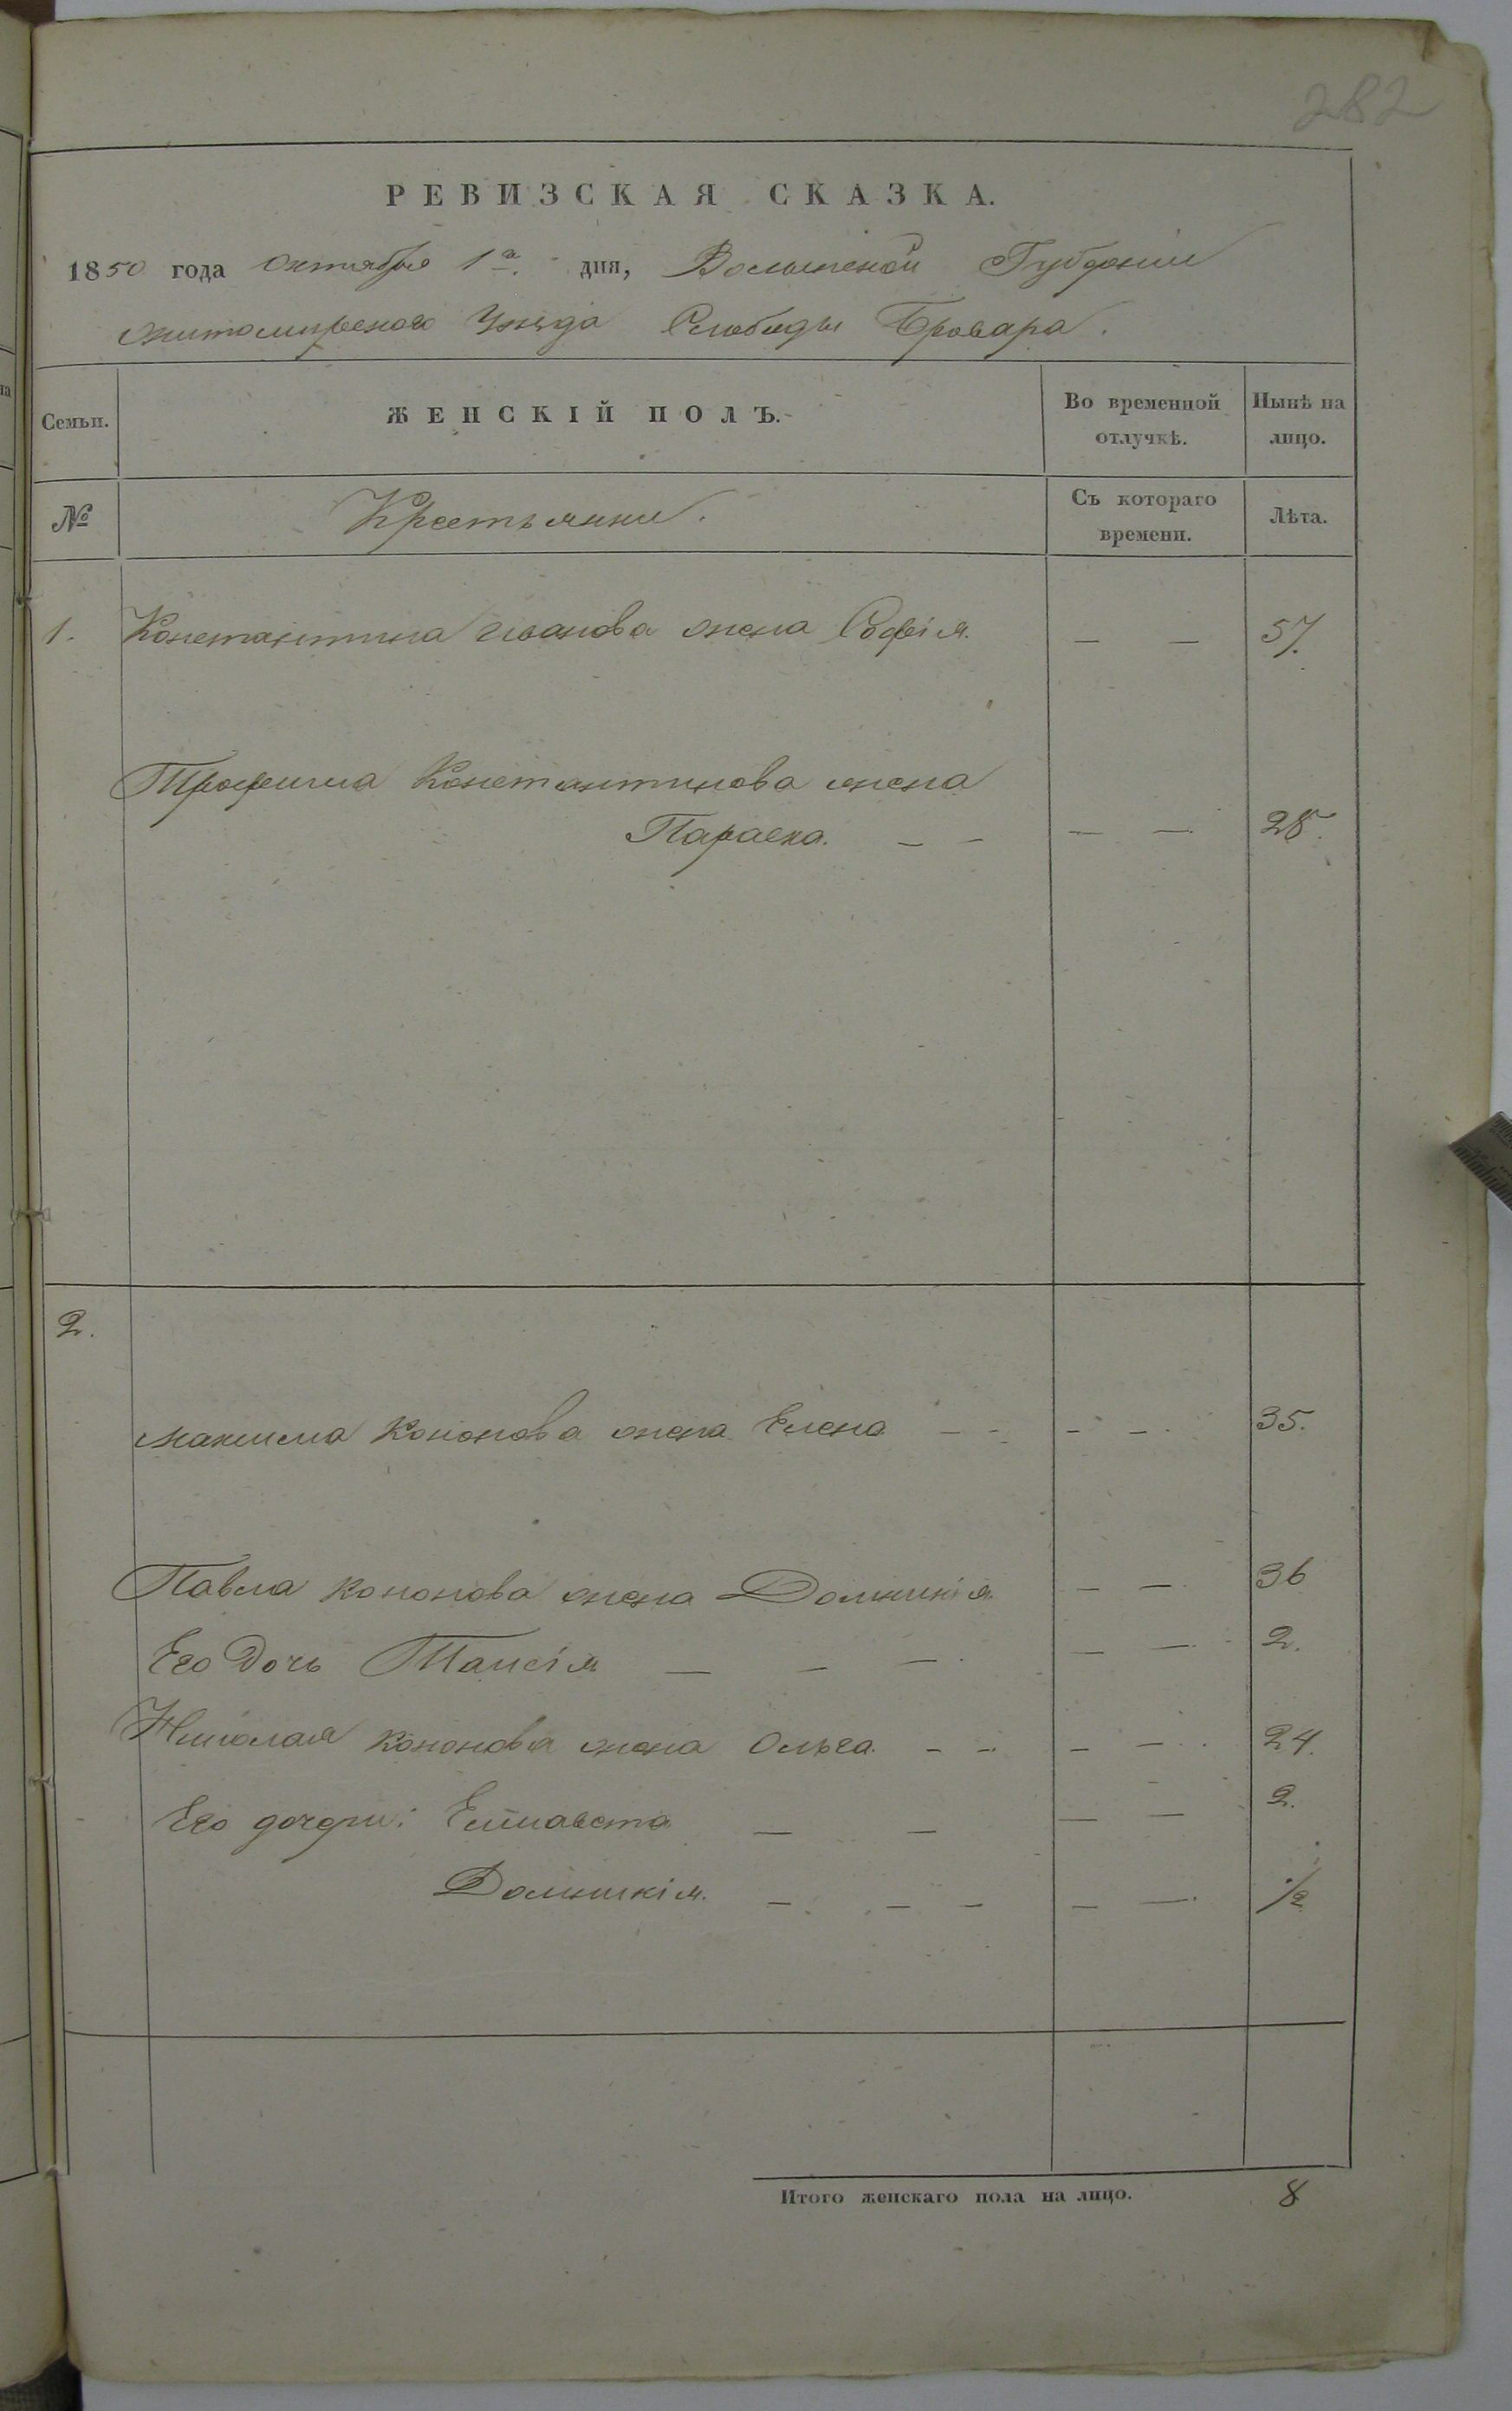 282
РЕВИЗСКАЯ СКАЗКА.
1850 года Октября 1а. дня, Волынской Губерніи
Житомирского Уѣзда Слободы Бровара.
Семьи.
ЖЕНСКІЙ ПОЛЪ.
Во временной
отлучкѣ.
Нынѣ на
лицо.
№
Крестьянки.
Съ котораго
времени.
Лѣта.
1. Константина Иванова жена Софія. — — 57.
Трофима Константинова жена
Параска. — — — — 28.
2.
Максима Кононова жена Елена — — — — 35.
Павла Кононова жена Домникія — — 36
Его дочь Таисія — — — — — 2.
Николая Кононова жена Ольга. — — — — 24.
Его дочери: Елисавета — — — — 2.
Домникія. — — — — — 1/2
Итого женскаго пола на лицо. 8